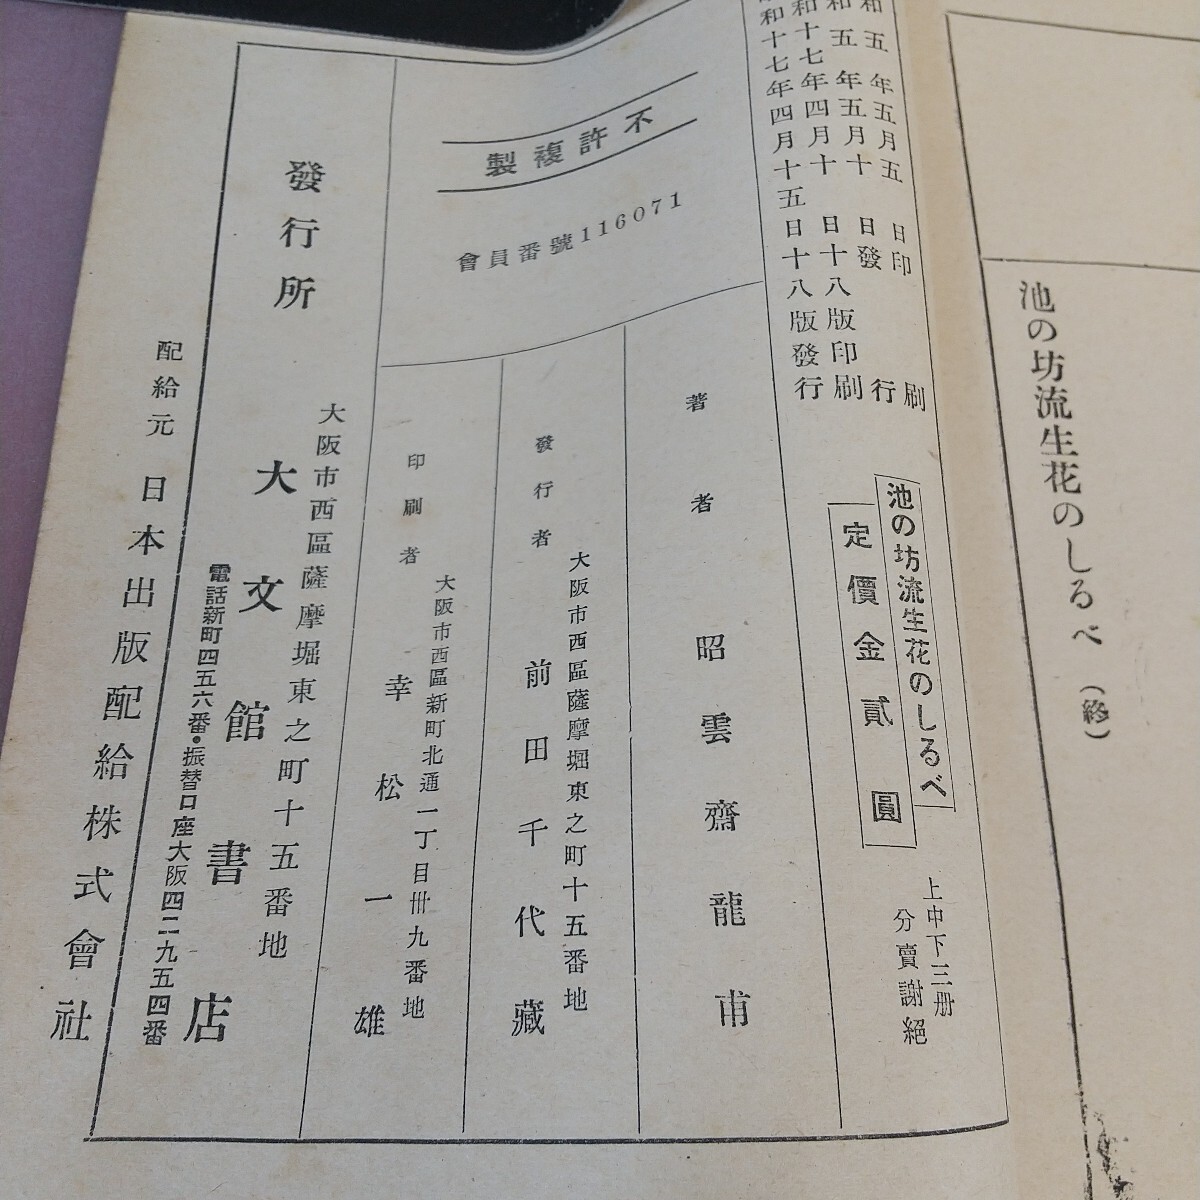 池の坊流生花のしるべ (終)
和五年五月五日印刷
和五年五月十日發行
和十七年四月十日十八版印刷
和十七年四月十五日十八版發行
池の坊流生花のしるべ
定價金貳圓
上中下三册
分賣謝絕
不許複製
會員番號116071
著者 昭雲齋龍甫
大阪市西區薩摩堀東之町十五番地
發行者 前田千代藏
大阪市西區新町北通一丁目卅九番地
印刷者 幸松一雄
大阪市西區薩摩堀東之町十五番地
發行所 大文館書店
電話新町四五六番・振替口座大阪四二九五四番
配給元 日本出版配給株式會社